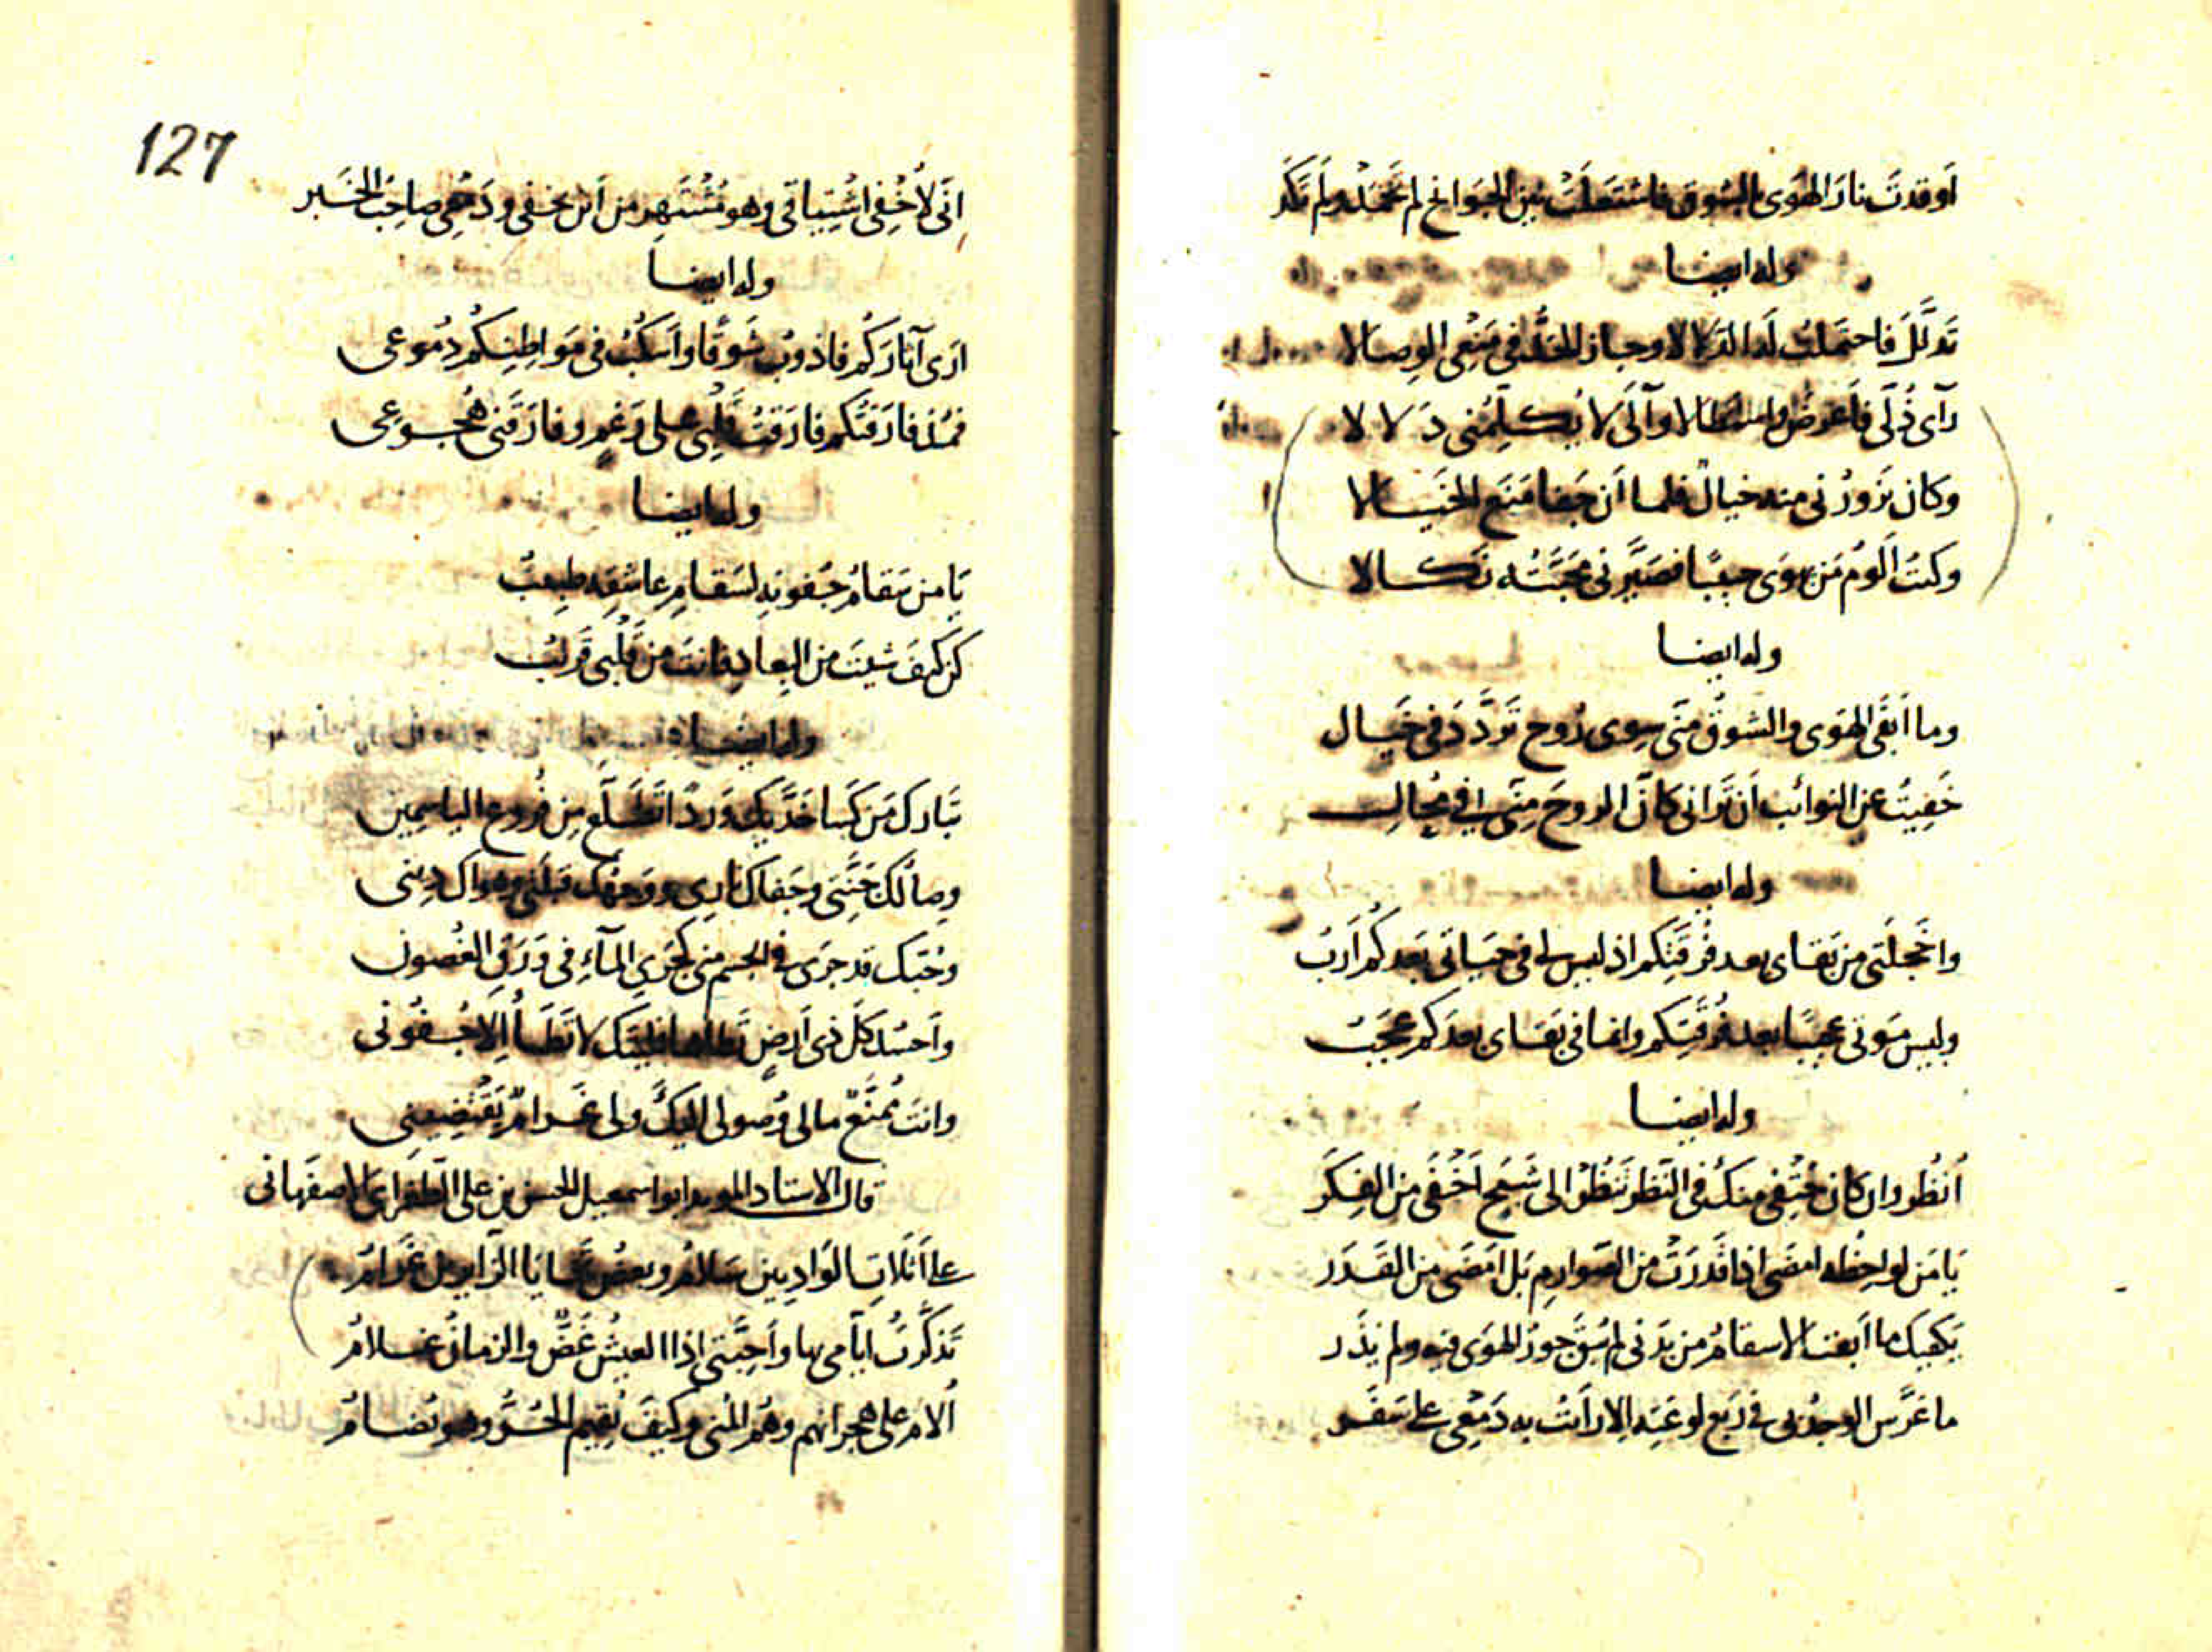 أوقدت نار الهوى بالشوق فاشتعلت بين الجوانح لم تخمد ولم تكد
وله ايضا
تَدلَّلَ فاحتملتُ له الدلالا وجاز الحدَّ في منعي الوصالا
رآى ذُلّى فأعرض واستطالا وآلى لا يكلّمني دلالا
وكان يزورُني منه خيالٌ فلما أن جفا منع الخيالا
وكنتُ ألوم من يهوى حبيبًا فصيّرني محبّتُه نكالا
وله ايضا
وما أبقى الهوى والشوقُ منّى سِوى رُوح تردّدَ في خيال
خَفِيتُ عن النوائب أن تراني كانّ الروحَ منّى في محال
وله ايضا
واخجلتى من بقاى بعد فُرقتكم اذ ليس لى في حياتى بعدكم أربُ
وليس موتى عجيبًا بعد فرقتكم وانما في بقاى بعدكم عجبُ
وله ايضا
اُنظُر وان كان حتفي منك في النظر تنظر الى شبح أخفى من الفكر
يا من لواحظه امضى اذا قدرت من الصوارم بل امضى من القدر
يكفيك ما ابقت الاسقام من بدنى لم يبق جور الهوى فيه ولم يذر
ما عرّس الوجد بى في ربع لوعته الا رأيتُ به دمعى على سفر
127
انّى لأخفى اشتياقى وهو مشتهر من أين يخفى ودمعى صاحبُ الخبر
وله ايضا
ارى آثاركم فاذوب شوقًا واسكبُ في مواطنكم دموعى
فمذ فارقتكم فارقتُ قلبى على رغمٍ وفارقنى هجوعى
وله ايضا
يا من سقامُ جفونه لسقامِ عاشقه طبيبُ
كن كيف شيت من البعاد فانت من قلبى قريبُ
وله ايضا
تبارك من كسا خدّيك وردًا تطلّع من فروع الياسمين
وصالك جنّتى وجفاك نارى ووجهك قبلتى وهواك دينى
وحبّك قد جرى في الجسم منى كجرى المآء في ورق الغصون
وأحسد كلّ ذى أرضٍ تطاها فليتك لا تطأ الا جفونى
وانت ممنّعٌ مالى وصولى اليك ولى غرامٌ يقتضينى
قال الاستاد المويد ابو اسمعيل الحسن بن على الطغراى الاصفهانى
على أثلات الواديين سلامُ وبعض تحايا الزايرين غرامُ
تذكّرتُ ايّامى بها وأحبّتى اذا العيشُ غضٌّ والزمانُ غلامُ
اُلام على هجرانهم وهُمُ المُنى وكيف يُقيم الحُرُّ وهو يُضامُ